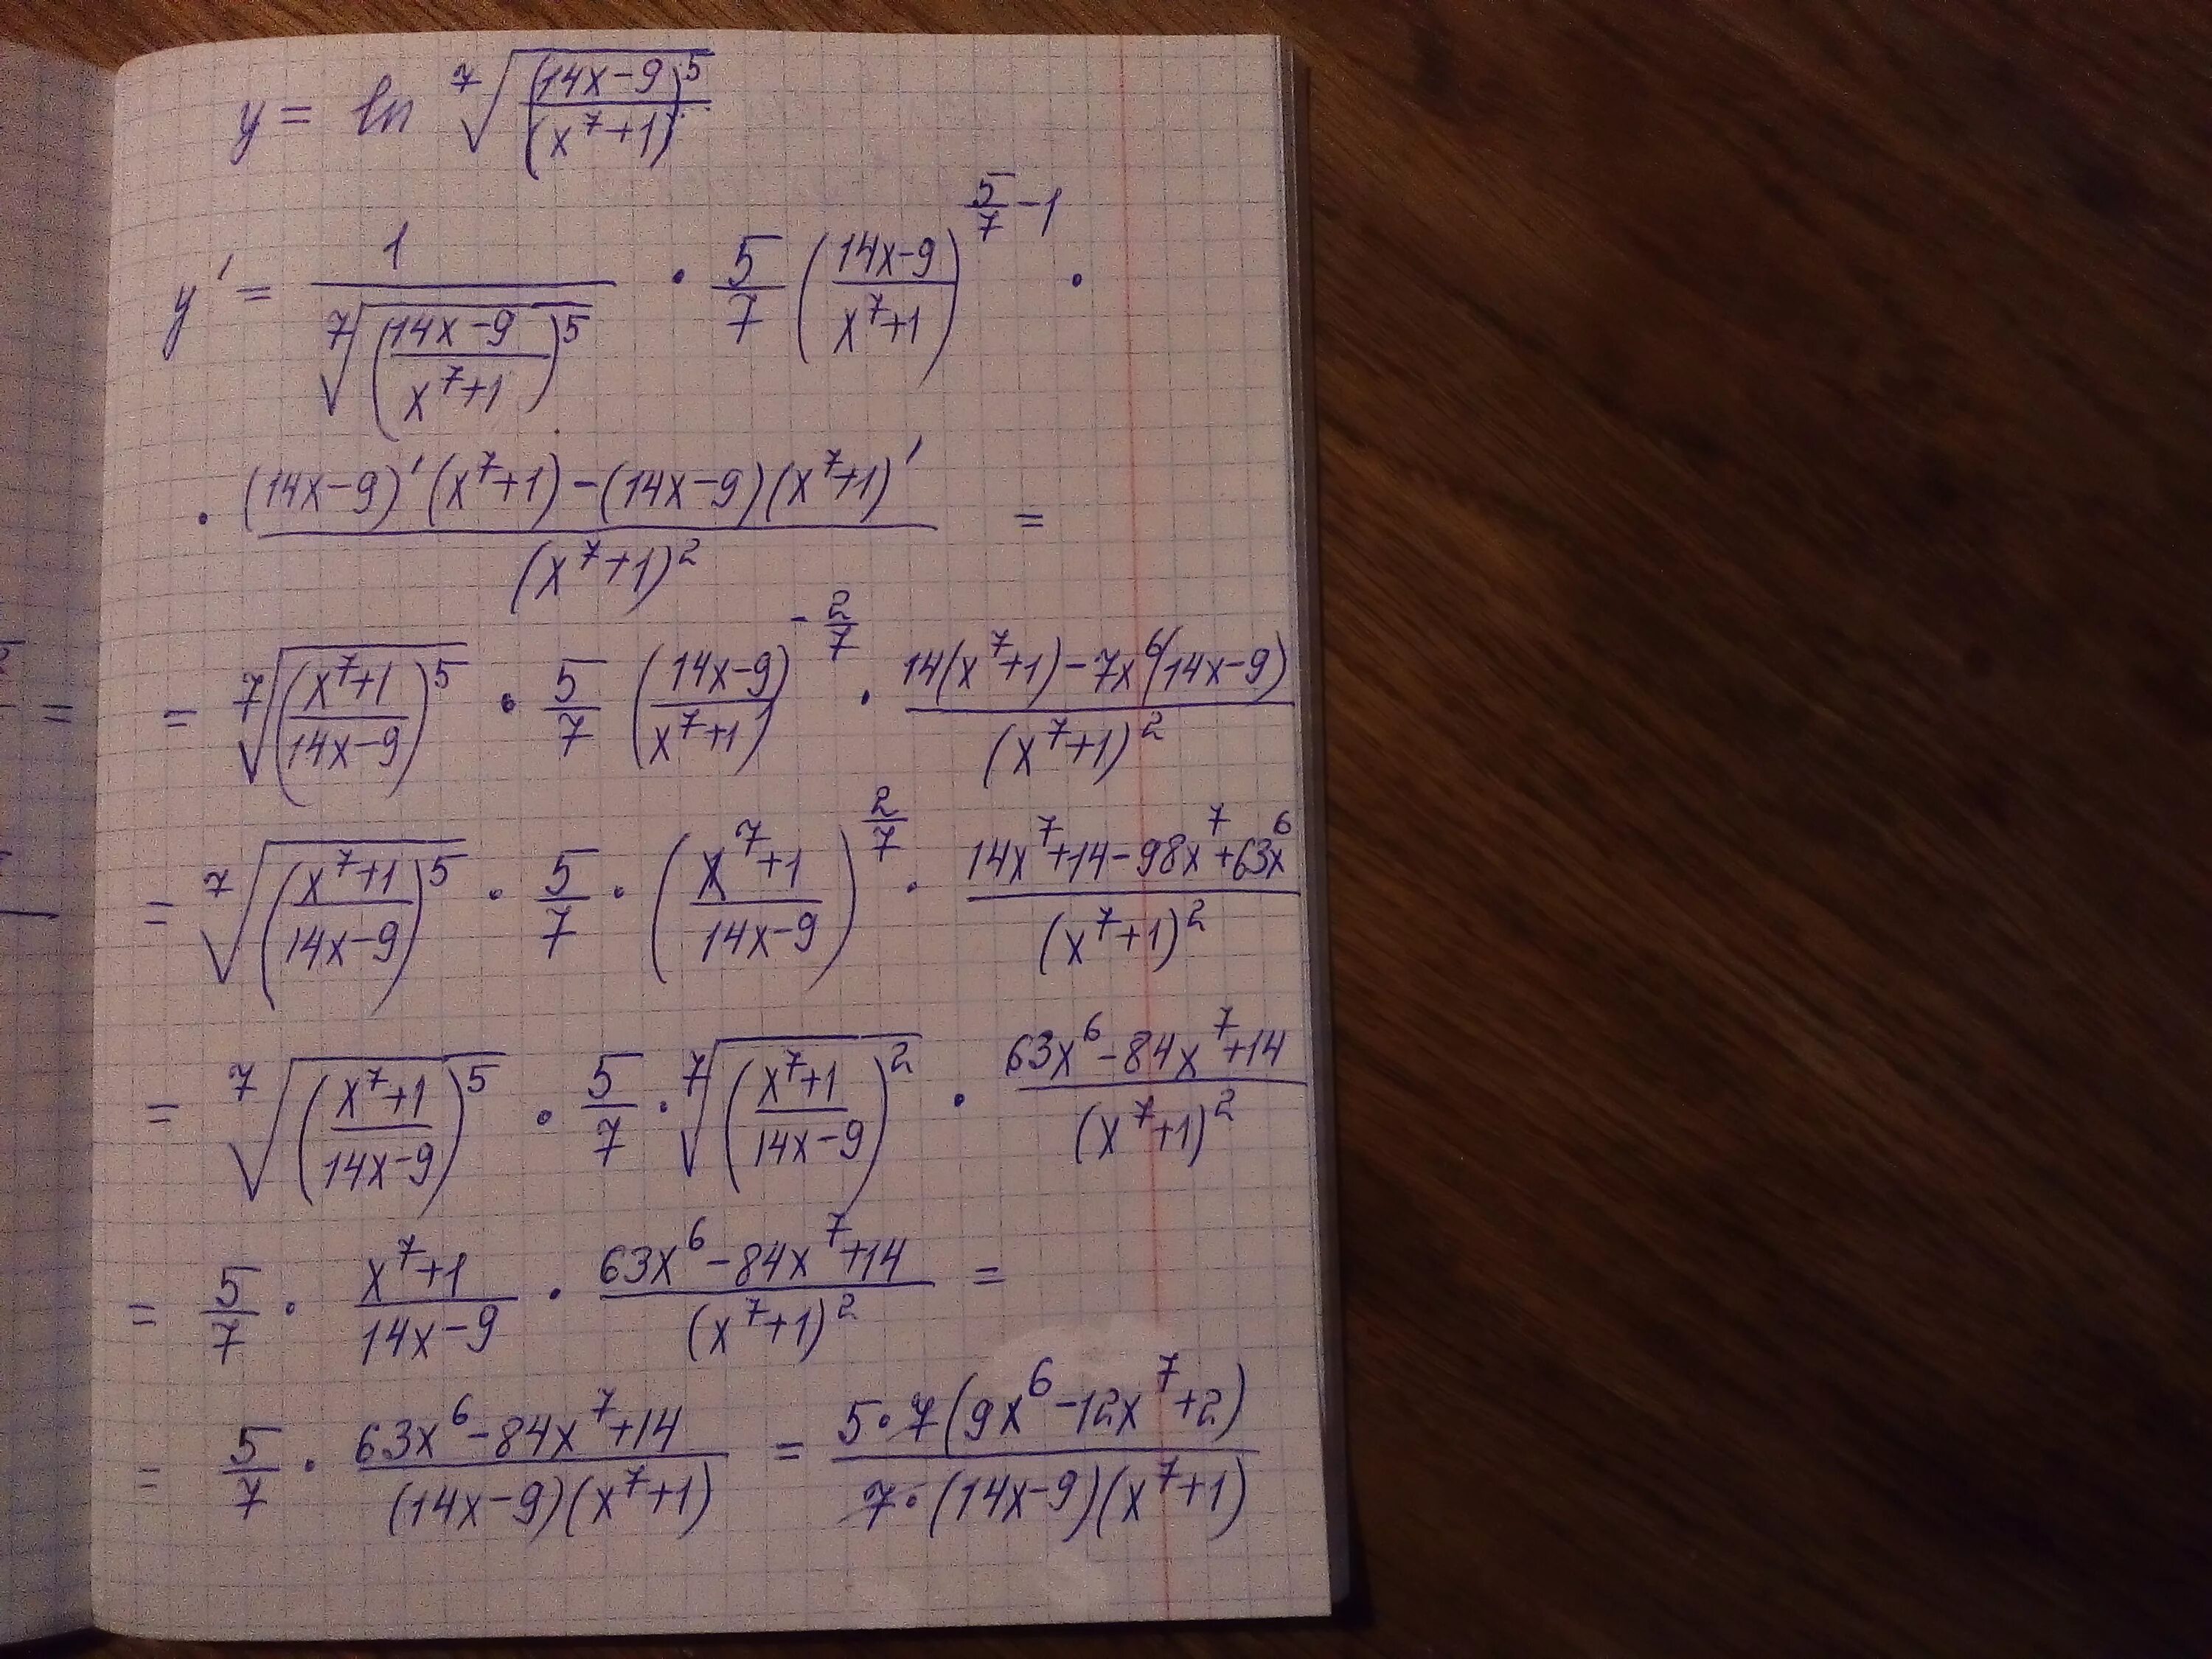 y = ln ⁷√((14x-9)/(x⁷+1))⁵
y' = 1/⁷√((14x-9)/(x⁷+1))⁵ · 5/7 ((14x-9)/(x⁷+1))^(5/7 - 1) ·
· ((14x-9)'(x⁷+1) - (14x-9)(x⁷+1)')/(x⁷+1)² =
= ⁷√((x⁷+1)/(14x-9))⁵ · 5/7 ((14x-9)/(x⁷+1))^(-2/7) · (14(x⁷+1) - 7x⁶(14x-9))/(x⁷+1)²
= ⁷√((x⁷+1)/(14x-9))⁵ · 5/7 · ((x⁷+1)/(14x-9))^(2/7) · (14x⁷+14-98x⁷+63x⁶)/(x⁷+1)²
= ⁷√((x⁷+1)/(14x-9))⁵ · 5/7 · ⁷√((x⁷+1)/(14x-9))² · (63x⁶-84x⁷+14)/(x⁷+1)²
= 5/7 · (x⁷+1)/(14x-9) · (63x⁶-84x⁷+14)/(x⁷+1)² =
= 5/7 · (63x⁶-84x⁷+14)/((14x-9)(x⁷+1)) = 5·7(9x⁶-12x⁷+2)/(7·(14x-9)(x⁷+1))